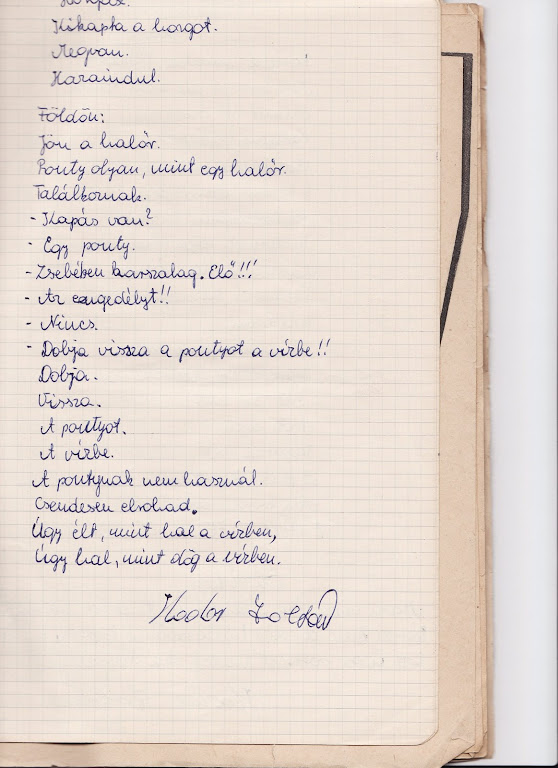 Kikapta a horgot.
Megvan.
Hazaindul.
Földön:
Jön a halőr.
Ponty olyan, mint egy halőr.
Találkoznak.
- Kapás van?
- Egy ponty.
- Zsebében karszalag. Elő!!!
- Az engedélyt!!
- Nincs.
- Dobja vissza a pontyot a vízbe!!
Dobja.
Vissza.
A pontyot.
A vízbe.
A pontynak nem használ.
Csendesen elrohad.
Úgy élt, mint hal a vízben,
Úgy hal, mint dög a vízben.